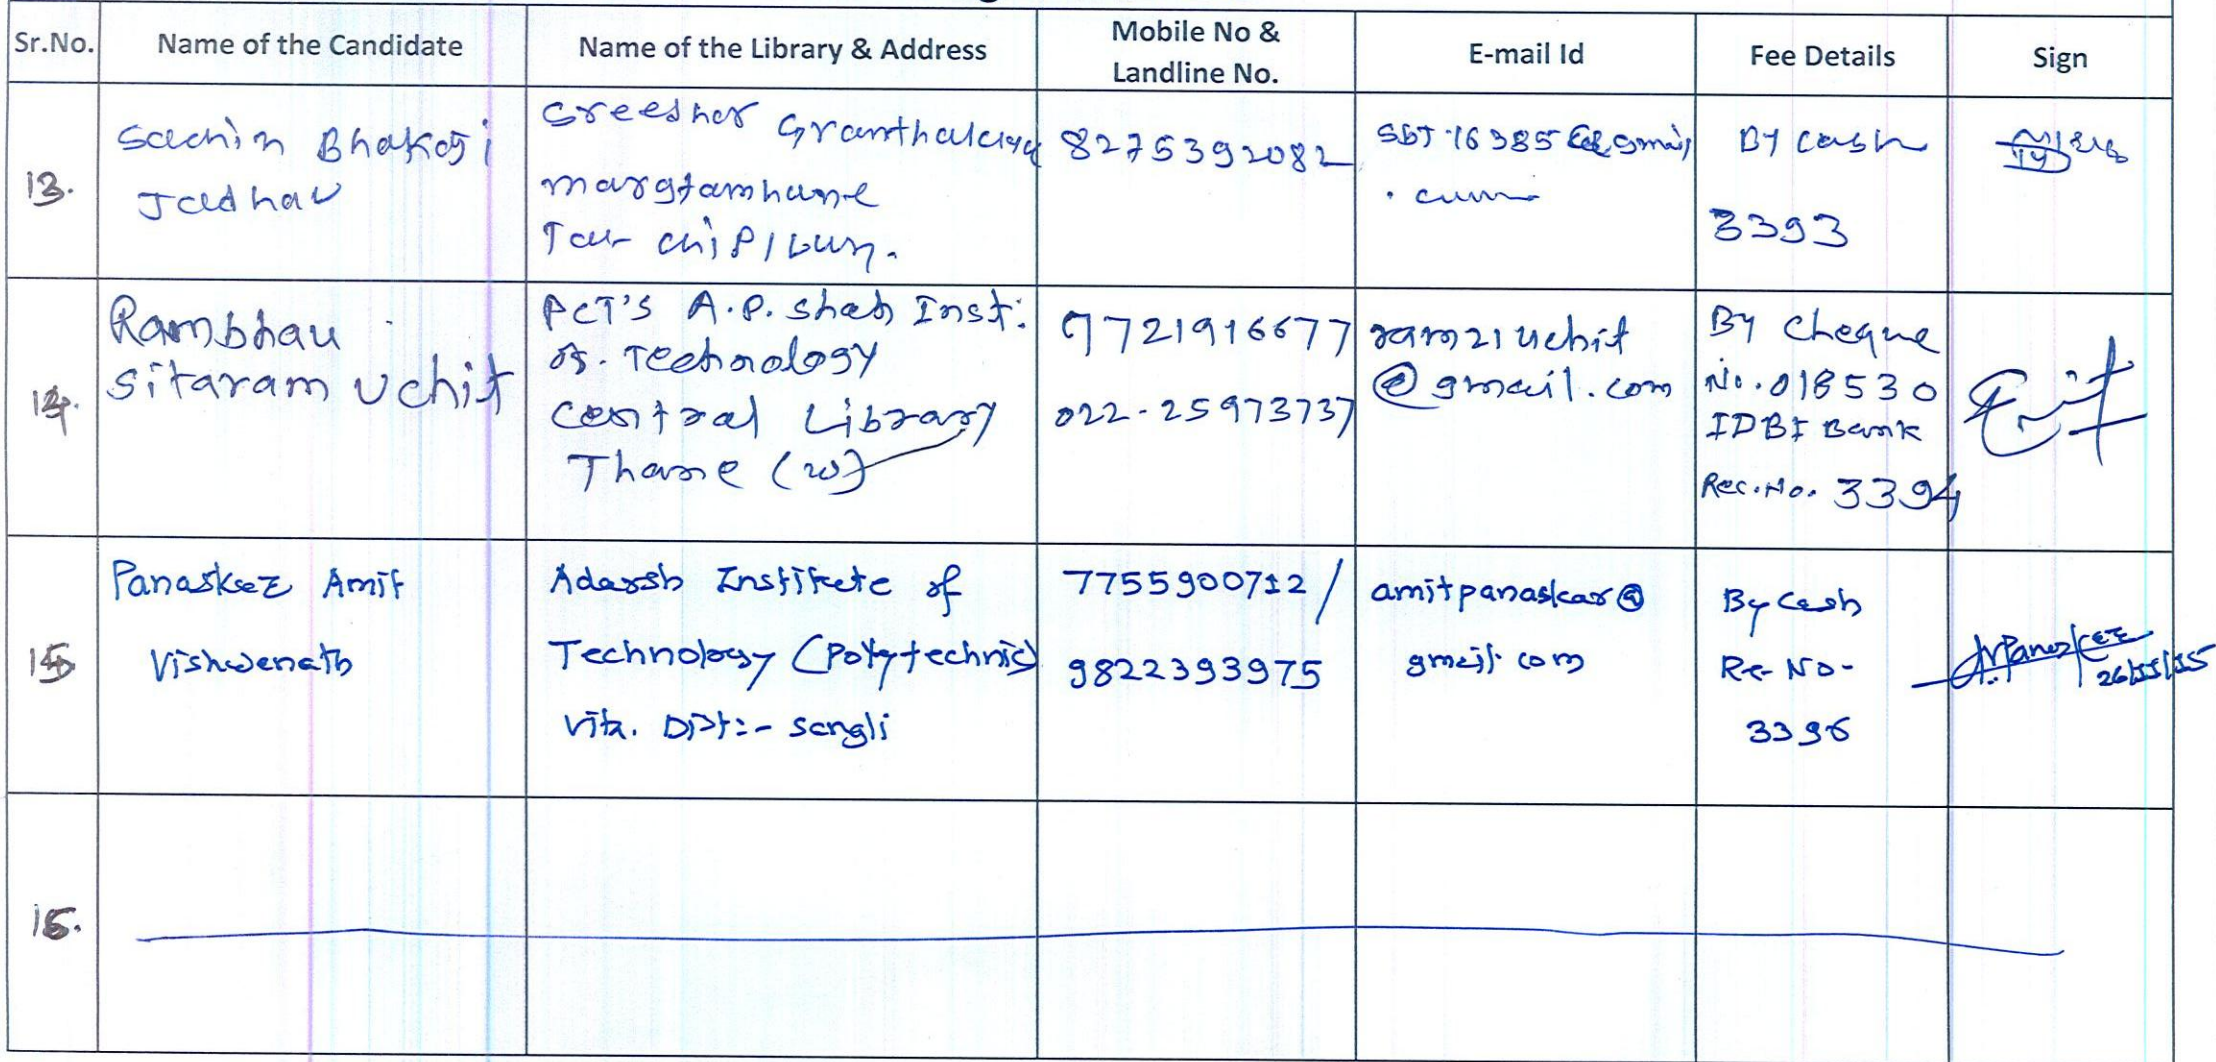 Sr.No. Name of the Candidate Name of the Library & Address Mobile No & Landline No. E-mail Id Fee Details Sign
13.
Sachin Bhakoji
Jadhav
Greeshor Granthalaya
margtamhane
Tal- chiplun.
8275392082
.com
By cash
3393
14.
Rambhau
Sitaram Uchit
PCT'S A.P. Shah Inst.
of. Technology
Central Library
Thane (w)
9721916677
022-25973737
ram21uchit
@gmail.com
By Cheque
No. 018530
IDBI Bank
Rec. No. 3394
15
Panaskar Amit
Vishwanath
Adarsh Institute of
Technology (Polytechnic)
Vita. Dist:- Sangli
7755900712/
9822393975
amitpanaskar@
gmail.com
By Cash
Re-No-
3396
16.